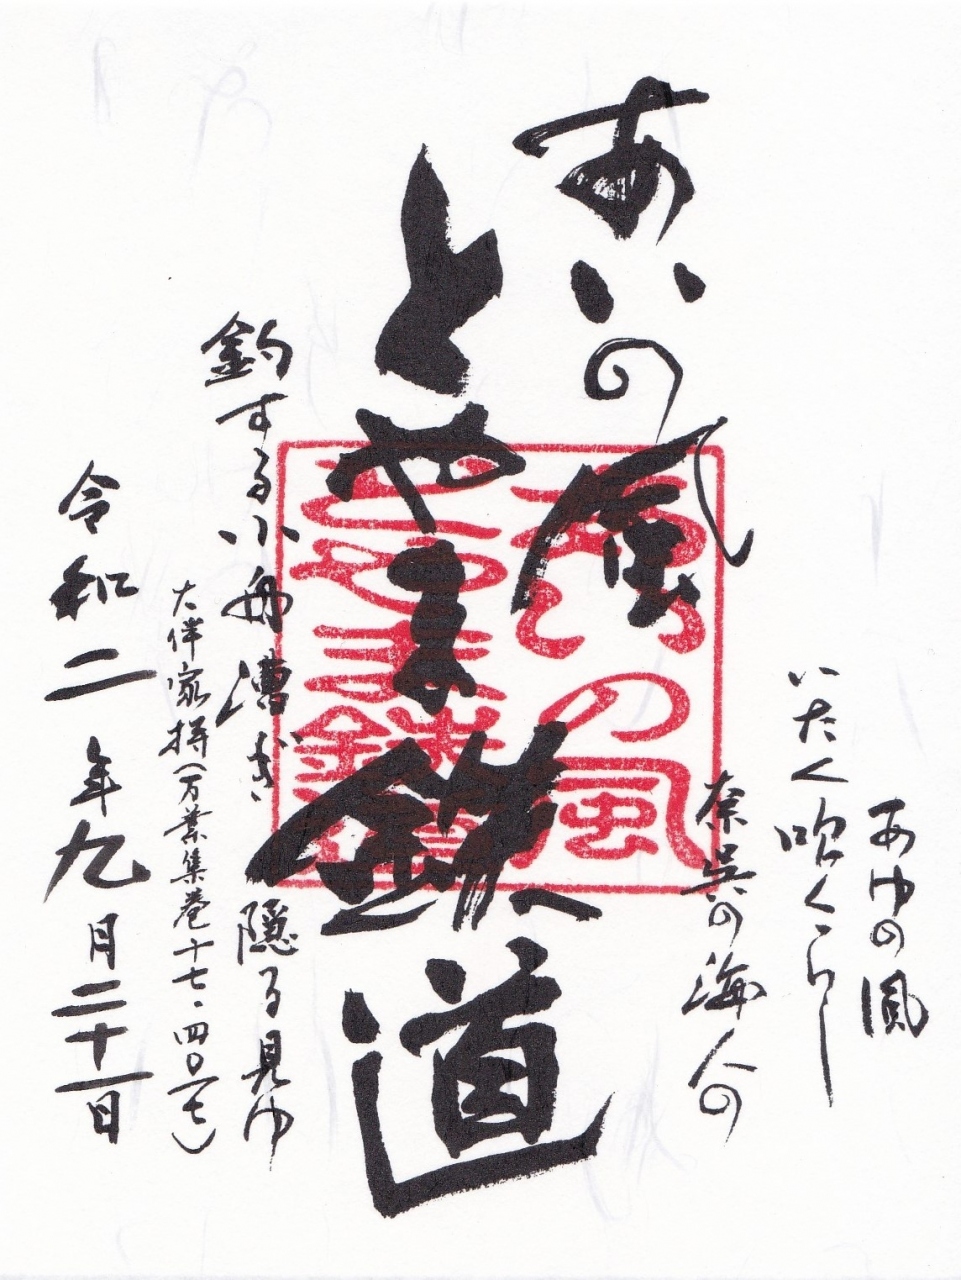 あゆの風
いたく吹くらし
奈呉の海人の
あいの風
とやま鉄道
あいの風
とやま鉄道
釣する小舟漕ぎ隠る見ゆ
大伴家持(万葉集巻十七・四〇一七)
令和二年九月二十一日